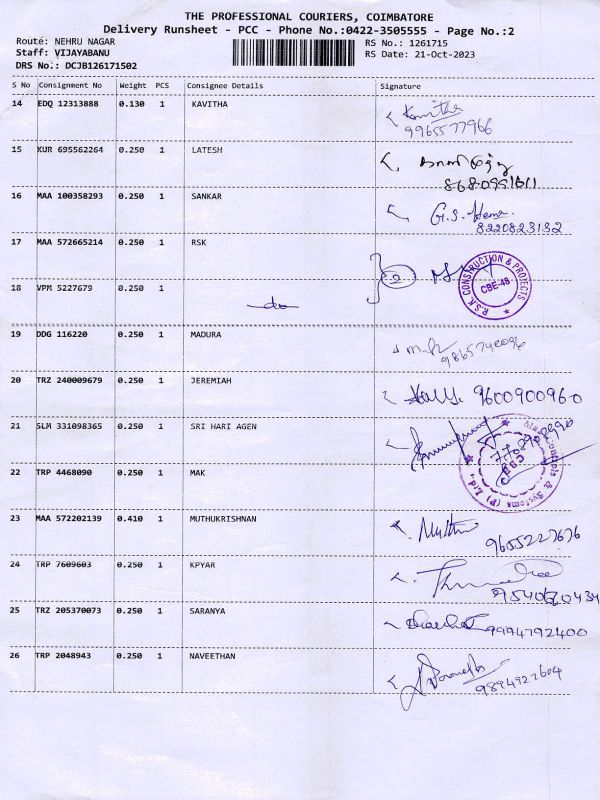 THE PROFESSIONAL COURIERS, COIMBATORE
Delivery Runsheet - PCC - Phone No.:0422-3505555 - Page No.:2
Route: NEHRU NAGAR RS No.: 1261715
Staff: VIJAYABANU RS Date: 21-Oct-2023
DRS No.: DCJB126171502
S No Consignment No Weight PCS Consignee Details Signature
14 EDQ 12313888 0.130 1 KAVITHA Kavitha
9965577966
15 KUR 695562264 0.250 1 LATESH
16 MAA 100358293 0.250 1 SANKAR G.S. Hema
8220823132
17 MAA 572665214 0.250 1 RSK 2
R.S.K. CONSTRUCTION & PROJECTS
CBE-48
18 VPM 5227679 0.250 1 do
19 DDG 116220 0.250 1 MADURA
20 TRZ 240009679 0.250 1 JEREMIAH 9600900960
21 SLM 331098365 0.250 1 SRI HARI AGEN
22 TRP 4468090 0.250 1 MAK
Mak Controls & Systems (P) Ltd.
23 MAA 572202139 0.410 1 MUTHUKRISHNAN Muthu
9655227676
24 TRP 7609603 0.250 1 KPYAR
25 TRZ 205370073 0.250 1 SARANYA 9994792400
26 TRP 2048943 0.250 1 NAVEETHAN
9894922604